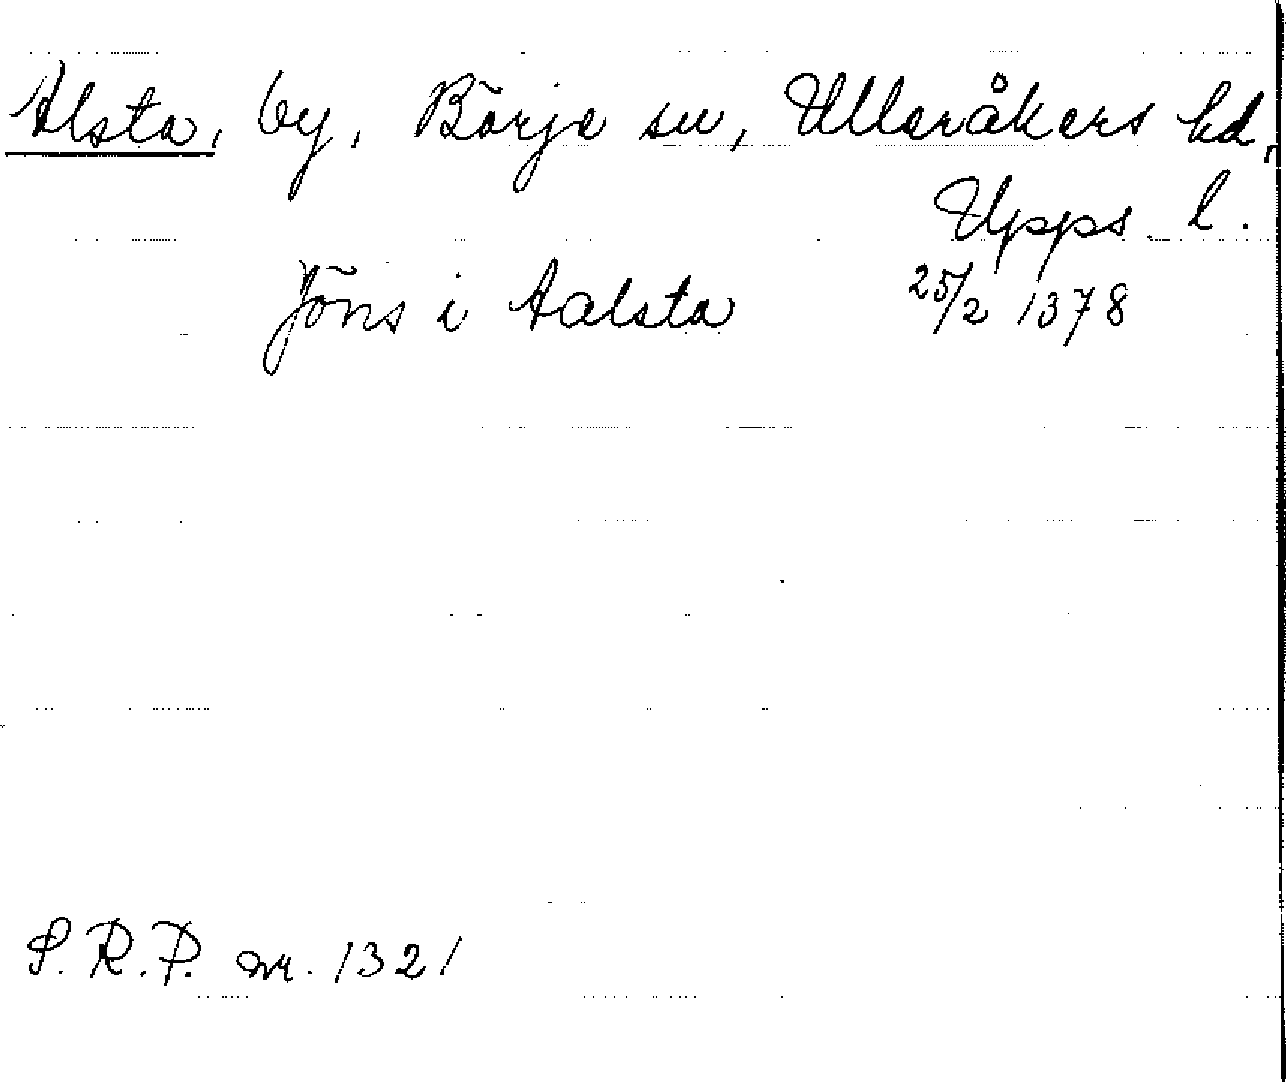 Alsta, by, Börje sn, Ulleråkers hd,
Upps. l.
Jöns i Aalsta 25/2 1378
S.R.P. nr. 1321